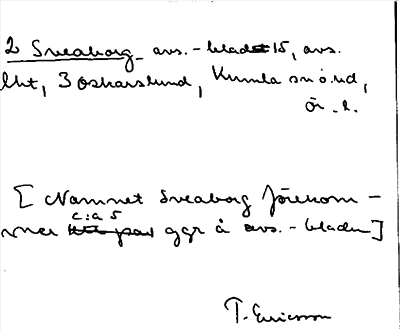 2 Sveaborg avs.-bladet 15, avs.
lht, 3 Oskarslund, Kumla sn o. hd,
Ör. l.
[Namnet Sveaborg förekom-
mer c:a 5 ggr å avs.-bladen]
T. Ericsson